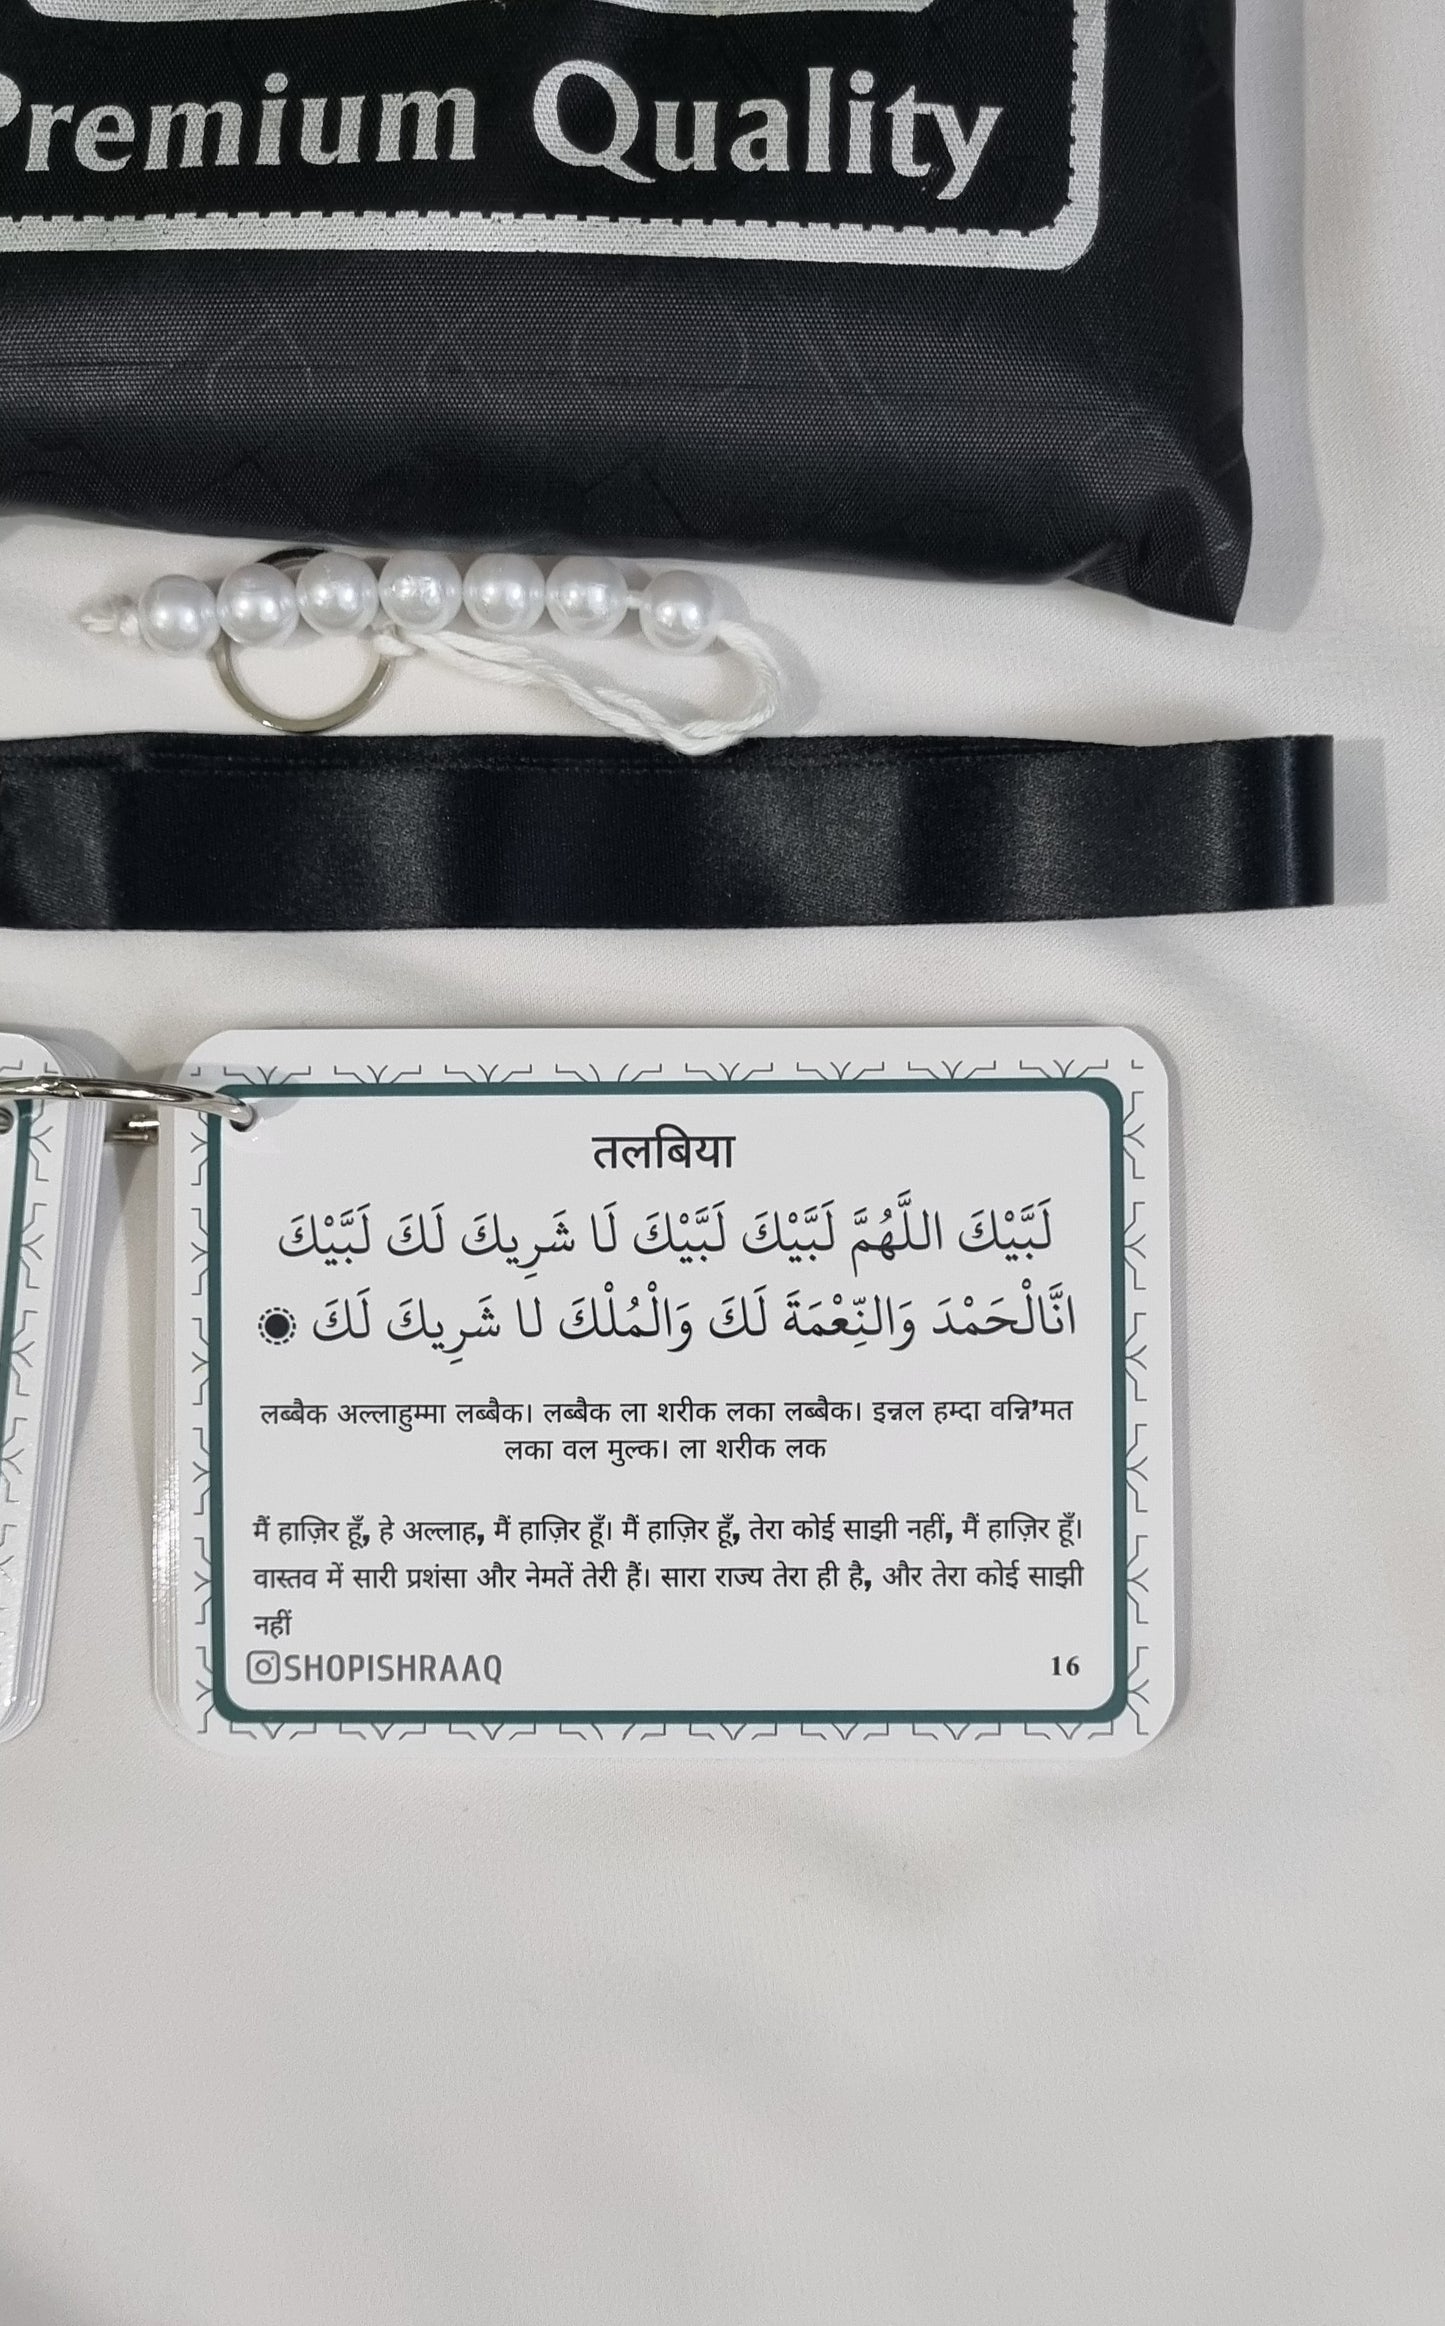 Premium Quality
तलबिया
لَبَّيْكَ اللَّهُمَّ لَبَّيْكَ لَبَّيْكَ لَا شَرِيكَ لَكَ لَبَّيْكَ
انَّالْحَمْدَ وَالنِّعْمَةَ لَكَ وَالْمُلْكَ لا شَرِيكَ لَكَ
लब्बैक अल्लाहुम्मा लब्बैक। लब्बैक ला शरीक लका लब्बैक। इन्नल हम्दा वन्नि’मत
लका वल मुल्क। ला शरीक लक
मैं हाज़िर हूँ, हे अल्लाह, मैं हाज़िर हूँ। मैं हाज़िर हूँ, तेरा कोई साझी नहीं, मैं हाज़िर हूँ।
वास्तव में सारी प्रशंसा और नेमतें तेरी हैं। सारा राज्य तेरा ही है, और तेरा कोई साझी
नहीं
SHOPISHRAAQ
16